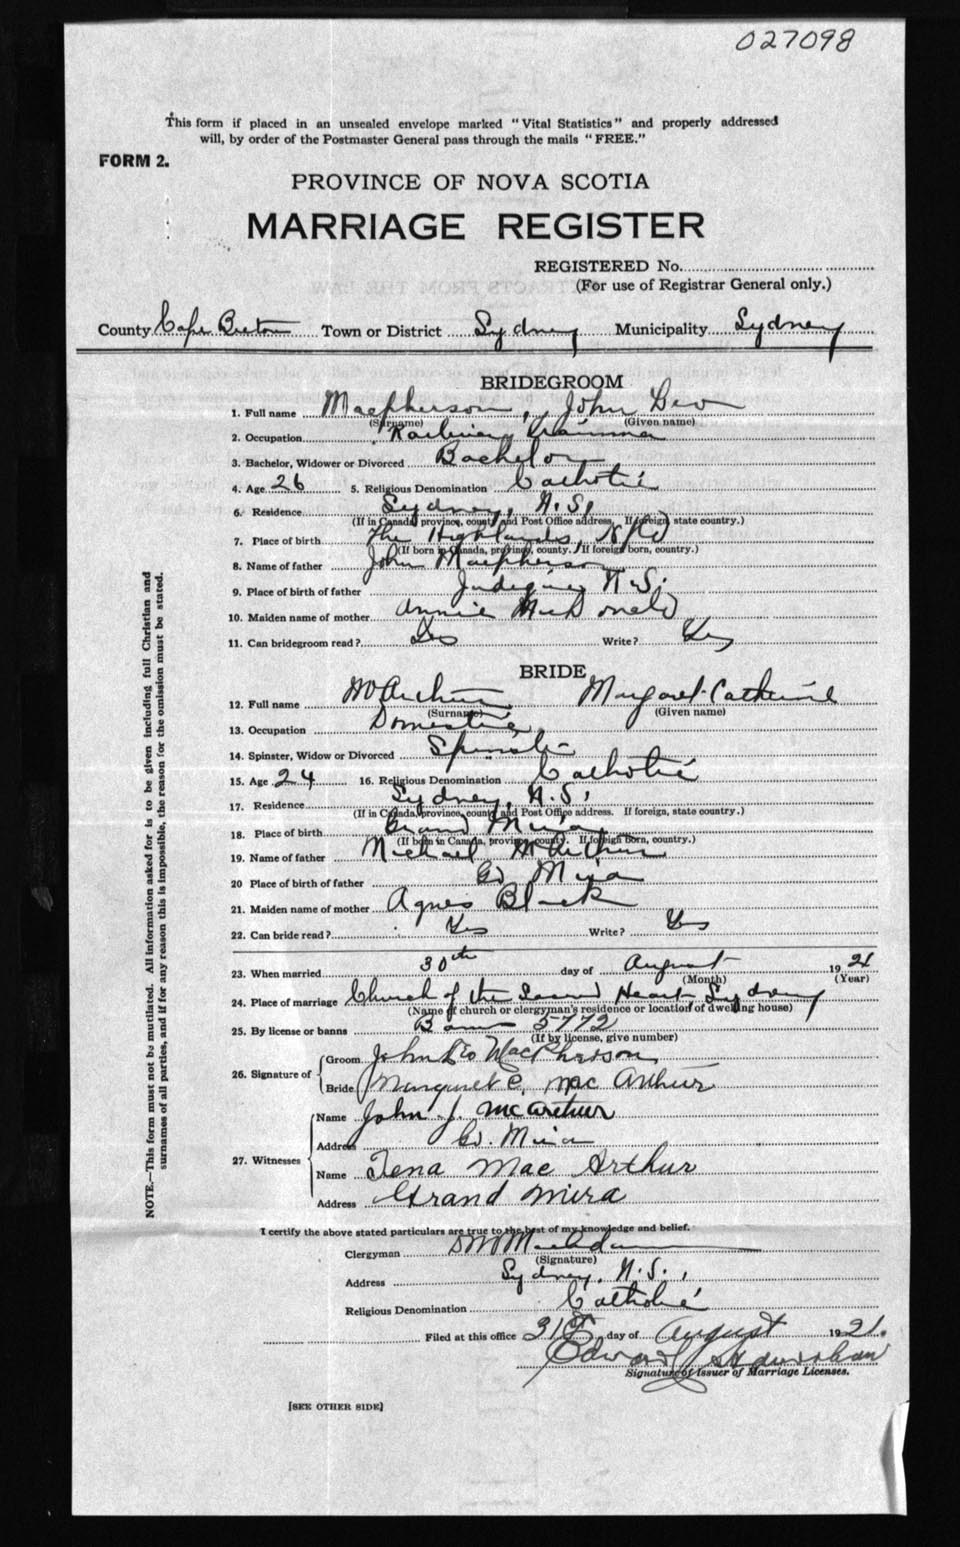 027098
This form if placed in an unsealed envelope marked "Vital Statistics" and properly addressed
will, by order of the Postmaster General pass through the mails "FREE."
FORM 2.
PROVINCE OF NOVA SCOTIA
MARRIAGE REGISTER
REGISTERED No.
(For use of Registrar General only.)
County Cape Breton Town or District Sydney Municipality Sydney
BRIDEGROOM
1. Full name Macpherson, John Leo
(Surname) (Given name)
2. Occupation Railway Trainman
3. Bachelor, Widower or Divorced Bachelor
4. Age 26 5. Religious Denomination Catholic
6. Residence Sydney, N.S.
(If in Canada, province, county and Post Office address. If foreign, state country.)
7. Place of birth The Highlands, Nfld
(If born in Canada, province, county. If foreign born, country.)
8. Name of father John Macpherson
9. Place of birth of father Judique N.S.
10. Maiden name of mother Annie McDonald
11. Can bridegroom read? Yes Write? Yes
BRIDE
12. Full name McArthur Margaret Catherine
(Surname) (Given name)
13. Occupation Domestic
14. Spinster, Widow or Divorced Spinster
15. Age 24 16. Religious Denomination Catholic
17. Residence Sydney, N.S.
(If in Canada, province, county and Post Office address. If foreign, state country.)
18. Place of birth Grand Mira
(If born in Canada, province, county. If foreign born, country.)
19. Name of father Michael McArthur
20 Place of birth of father Gd Mira
21. Maiden name of mother Agnes Black
22. Can bride read? Yes Write? Yes
23. When married 30th day of August 1921
(Month) (Year)
24. Place of marriage Church of the Sacred Heart, Sydney
(Name of church or clergyman's residence or location of dwelling house)
25. By license or banns Banns 5772
(If by license, give number)
26. Signature of Groom John Leo MacPherson
Bride Margaret C. Mac Arthur
27. Witnesses Name John J. McArthur
Address Gd. Mira
Name Tena Mac Arthur
Address Grand Mira
I certify the above stated particulars are true to the best of my knowledge and belief.
Clergyman
(Signature)
Address Sydney, N.S.,
Religious Denomination Catholic
Filed at this office 31st day of August 1921.
Edward
Signature of Issuer of Marriage Licenses.
[SEE OTHER SIDE]
NOTE.—This form must not be mutilated. All information asked for is to be given including full Christian and
surnames of all parties, and if for any reason this is impossible, the reason for the omission must be stated.